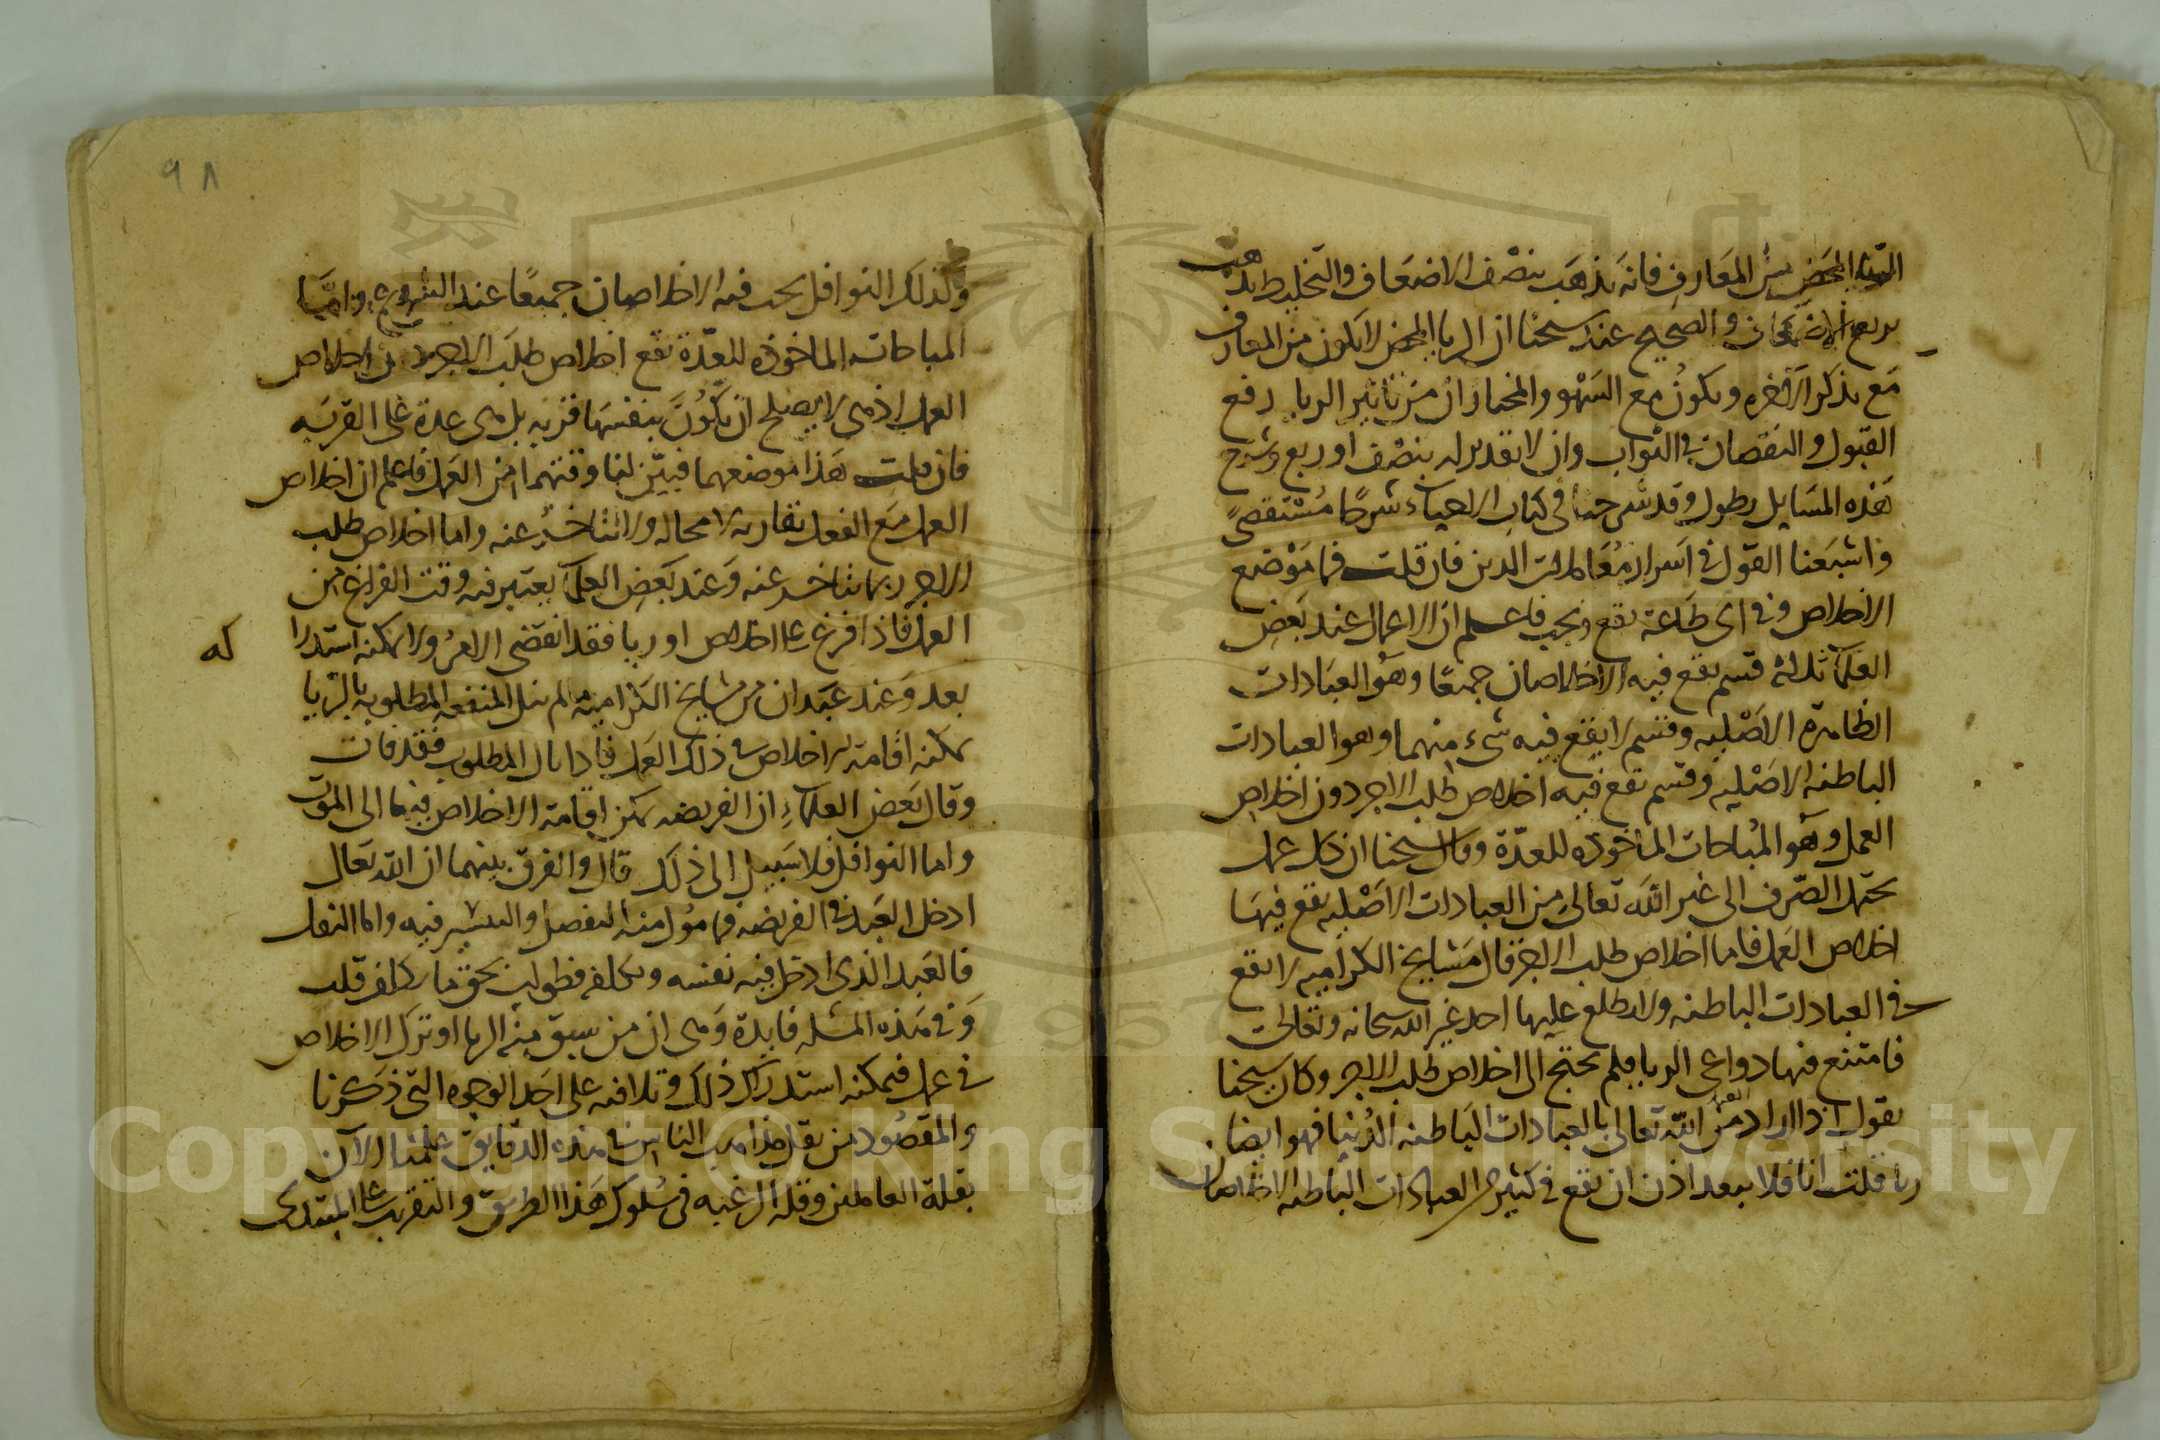 الرياء المحض من المعارف فانه يذهب بنصف الاضعاف والتخليط يذهب
بربع الاضعاف والصحيح عند شيخنا ان الريا المحض لا يكون من المعارف
مع تذكر الاخره ويكون مع السهو والمختار ان من تاثير الريا رفع
القبول والنقصان في الثواب وان لا تقدير له بنصف او ربع وشرح
هذه المسايل يطول وقد شرحنا في كتاب الاحياء شرحًا مستقصى
واشبعنا القول في اسرار معاملات الدين فان قلت فما موضع
الاخلاص وفى اى طاعة يقع ويجب فاعلم ان الاعمال عند بعض
العلما ثلثه قسم يقع فيه الاخلاصان جميعًا وهو العبادات
الظاهرة الاصليه وقسم لا يقع فيه شيء منهما وهو العبادات
الباطنه الاصليه وقسم يقع فيه اخلاص طلب الاجر دون اخلاص
العمل وهو المباحات الماخوذه للعدّة وقال شيخنا ان كل عمل
يحتمل الصرف الى غير الله تعالى من العبادات الاصليه يقع فيها
اخلاص العمل فاما اخلاص طلب الاجر قال مشايخ الكراميه لا يقع
في العبادات الباطنه ولا يطلع عليها احد غير الله سبحانه وتعالى
فامتنع فيها دواعى الريا فلم يحتج الى اخلاص طلب الاجر وكان شيخنا
يقول اذا اراد العبد من الله تعالى بالعبادات الباطنه الدنيا فهو ايضا
ريا قلت انا فلا يبعد اذن ان يقع في كثير من العبادات الباطنه الاخلاصان
٩٨
وكذلك النوافل يجب فيه الاخلاصان جميعًا عند الشروع واما
المباحات الماخوذه للعدّة يقع اخلاص طلب الاجر دون اخلاص
العمل اذ هى لا يصلح ان تكون بنفسها قربه بل هى عدة على القربه
فان قلت هذا موضعهما فبيّن لنا وقتهما من العمل فاعلم ان اخلاص
العمل مع الفعل يقارنه لا محاله ولا يتاخر عنه واما اخلاص طلب
الاجر ربما يتاخر عنه وعند بعض العلما يعتبر فيه وقت الفراغ من
العمل فاذا فرغ على اخلاص او ريا فقد انقضى الامر ولا يمكنه استدرا
كه
بعد وعند عبدان من مشايخ الكراميه لم ينل المنفعه المطلوبه بالريا
يمكنه اقامة الاخلاص في ذلك العمل فاذا نال المطلوب فقد فات
وقال بعض العلماء ان الفريضه يمكن اقامة الاخلاص فيها الى الموت
واما النوافل فلا سبيل الى ذلك قال والفرق بينهما ان الله تعالى
ادخل العبد في الفريضه فمامول منه التفضل والتيسير فيه واما النفل
فالعبد الذى ادخل فيه نفسه وتكلفه فطولب بحق ما تكلف قلت
وفى هذه المسله فايدة وهى ان من سبق منه الريا او ترك الاخلاص
في عمل فيمكنه استدراك ذلك وتلافيه على احد الوجوه التى ذكرنا
والمقصود من نقل مذاهب الناس في هذه الدقايق علمنا الآن
بقلة العاملين وقلة الرغبه في سلوك هذا الطريق والتقريب على المبتدى